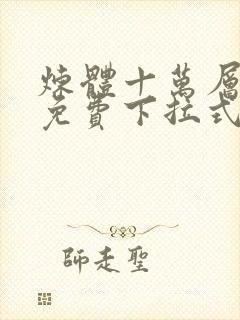 煉體十萬層
免費下拉式
師走聖